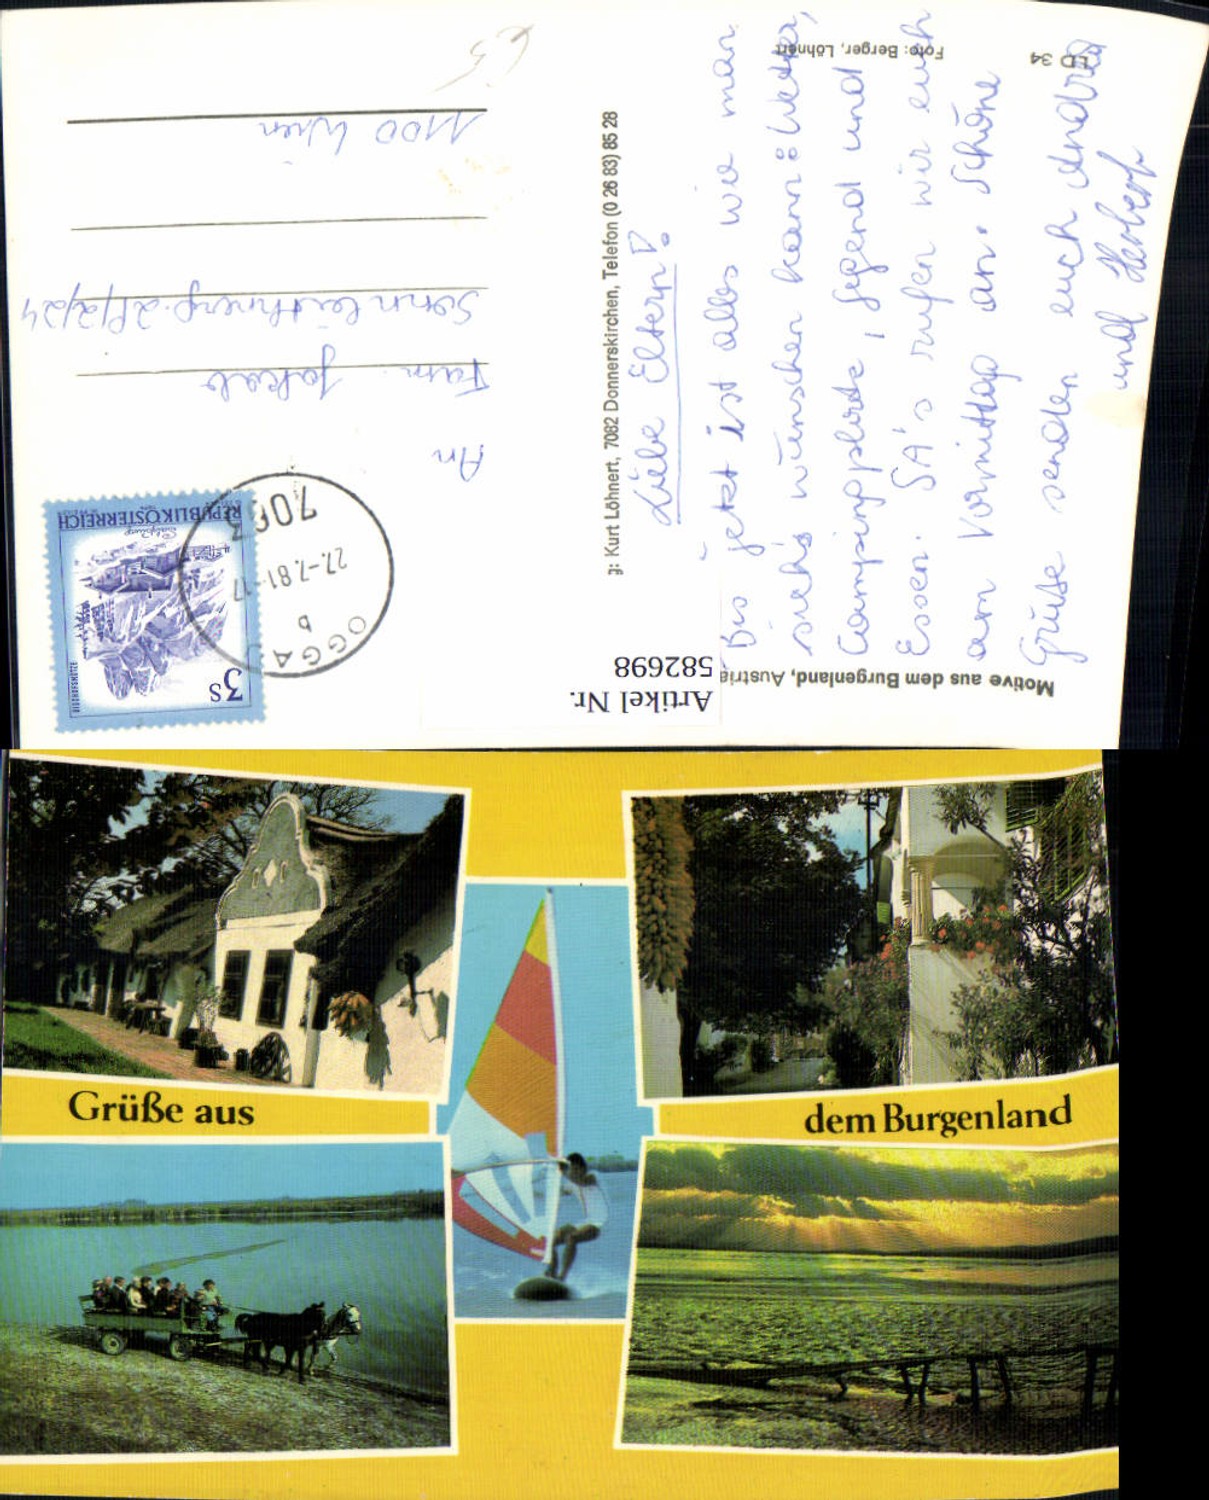 Motive aus dem Burgenland, Austria
Liebe Eltern!
Bis jetzt ist alles wie man
sich's wünschen kann: Wetter,
Campingplatz, Gegend und
Essen. SA's rufen wir euch
am Vormittag an. Schöne
Grüße senden euch Andrea
und Herbert
LD 34
Foto: Berger, Löhnert
g: Kurt Löhnert, 7082 Donnerskirchen, Telefon (0 26 83) 85 28
Artikel Nr.
582698
3S
BISCHOFSMÜTZE
Salzburg
REPUBLIK ÖSTERREICH
OGGA
b
27.-7.81-17
7063
An
Fam. Jakab
1100 Wien
Grüße aus
dem Burgenland